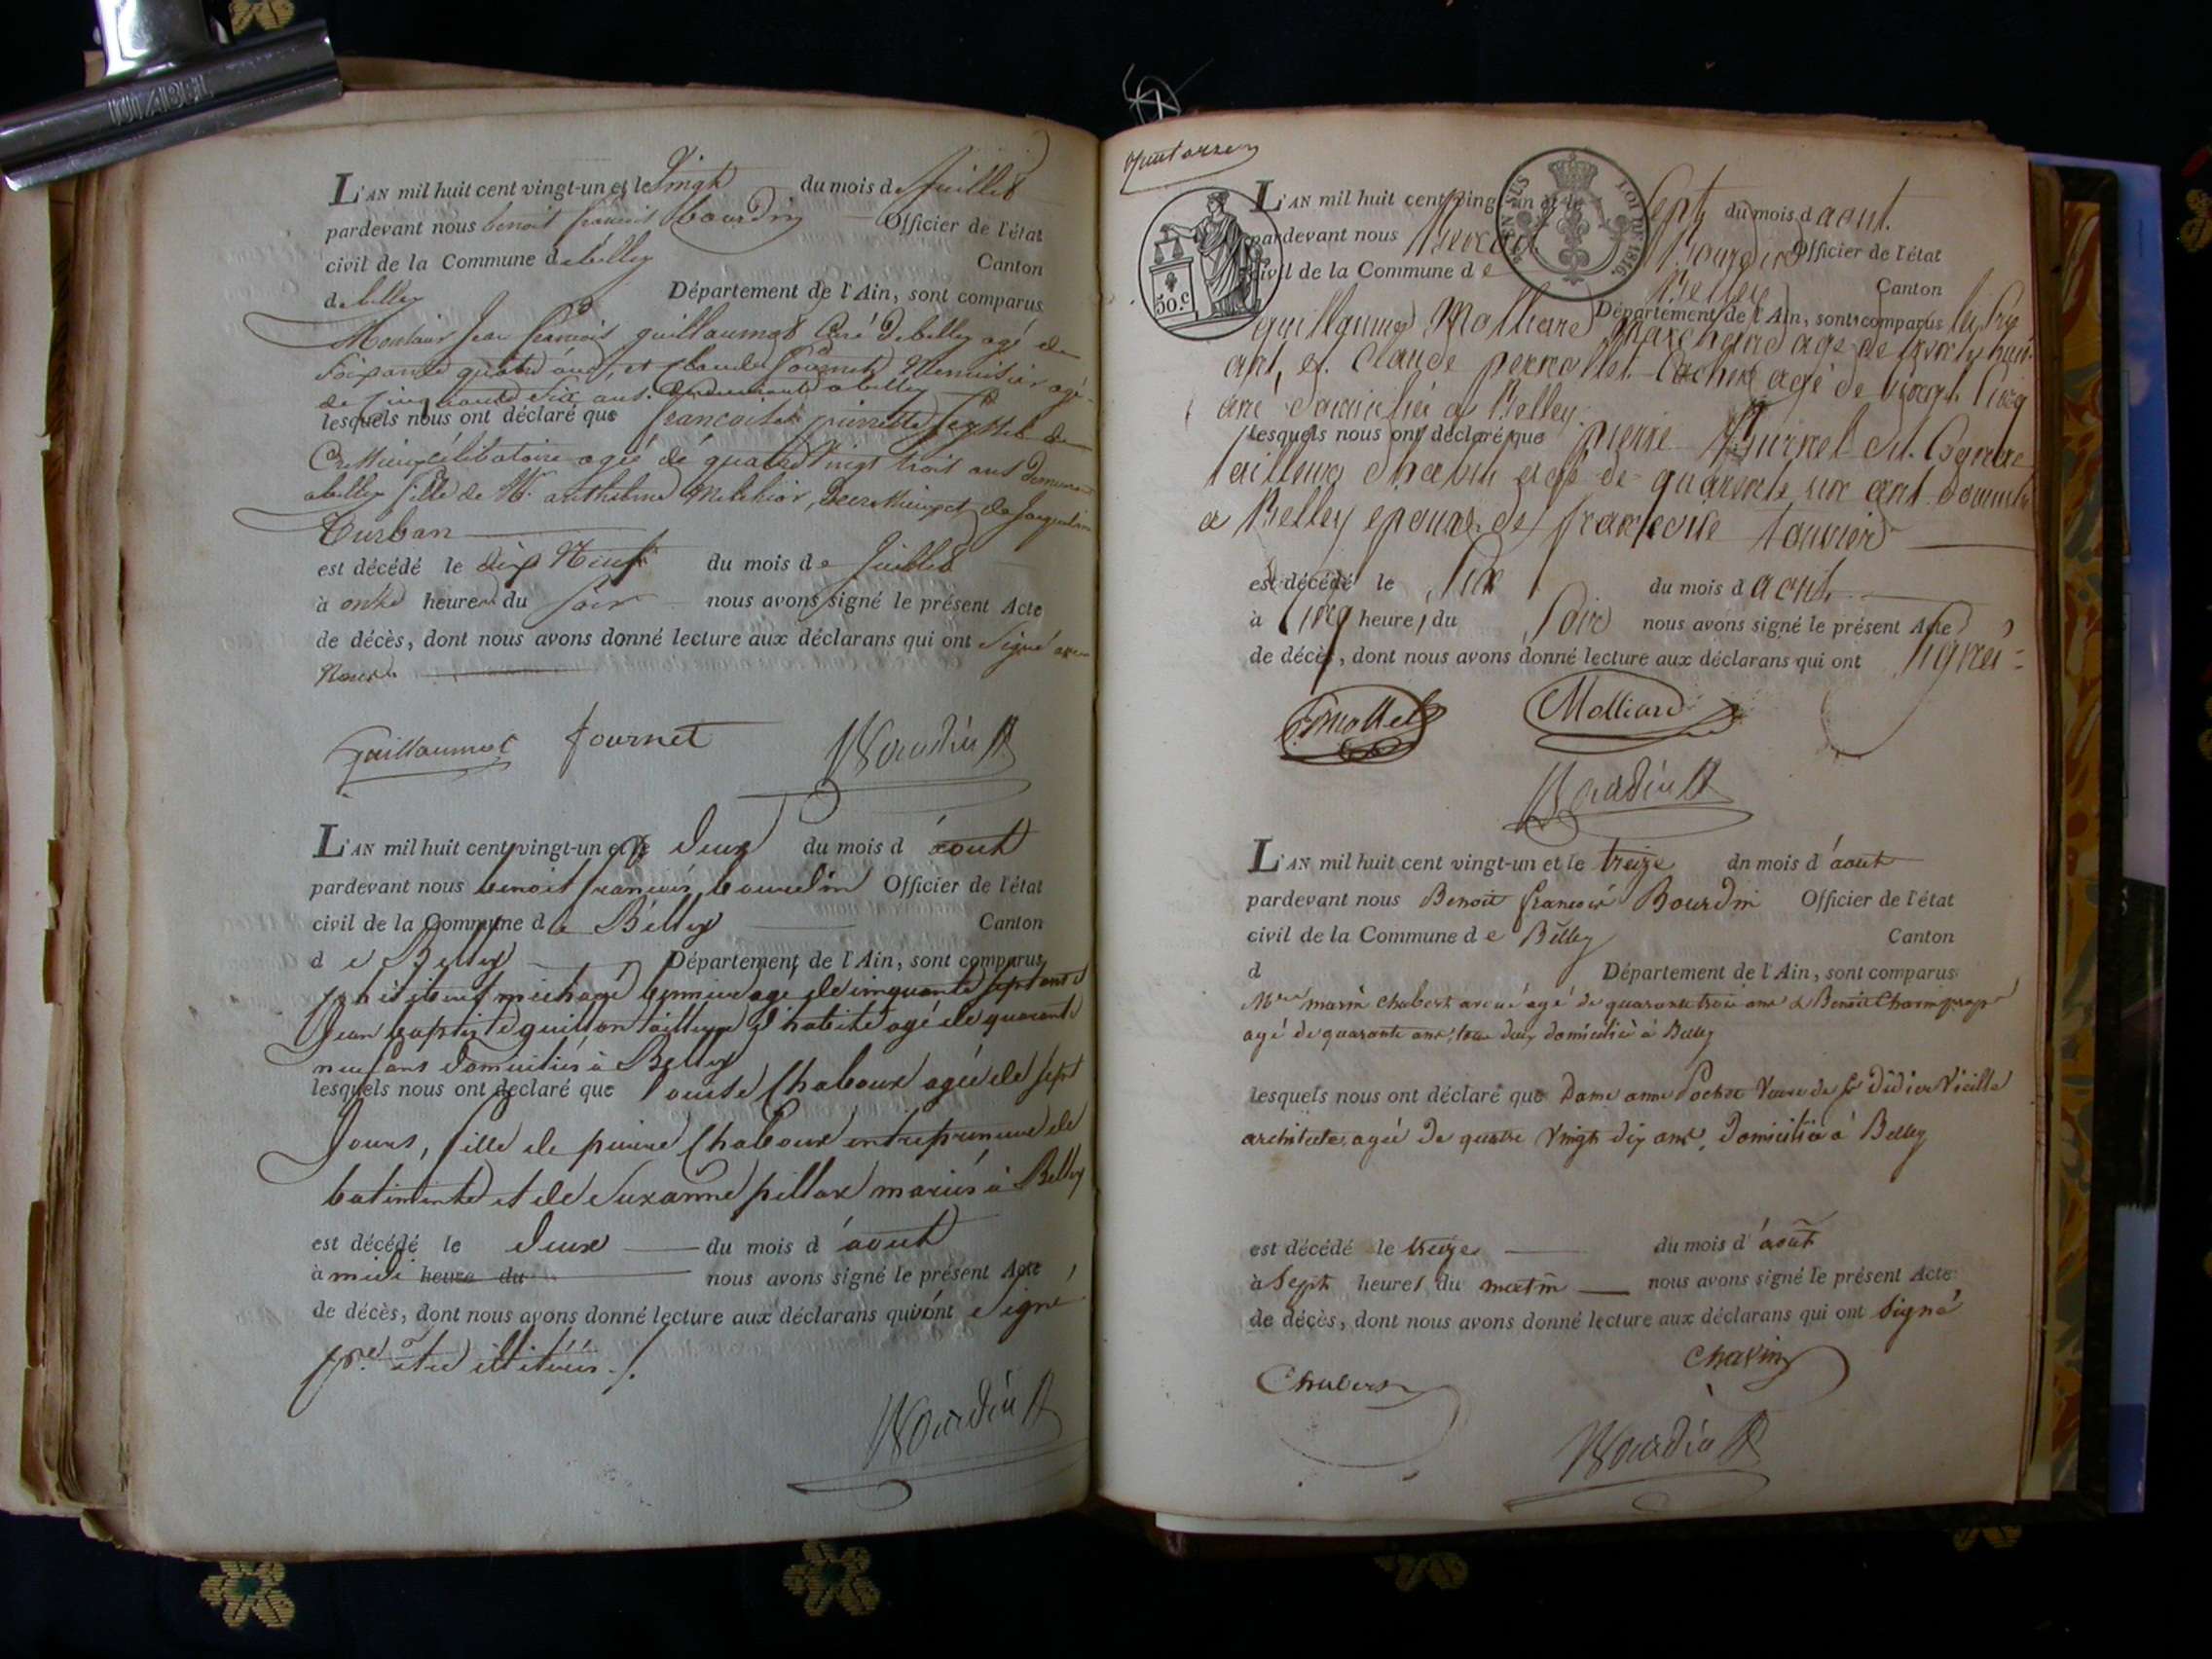 L'AN mil huit cent vingt-un et le Vingt du mois de Juillet
pardevant nous benoit francois bourdin Officier de l'état
civil de la Commune de belley Canton
de belley Département de l'Ain, sont comparus
Monsieur Jean francois guillaumot Curé de belley agé de
Soixante quatre ans, et Claude fournet Menuisier agé
de Cinquante Six ans. demeurant a belley
lesquels nous ont déclaré que francoise pierrette Seyssel de
célibataire agée de quatre Vingt trois ans demeurant
a belley fille de Mr. anthelme Melchior, et de Jacqueline
Turban
est décédé le dix Neuf du mois de Juillet
à onze heures du Soir nous avons signé le présent Acte
de décès, dont nous avons donné lecture aux déclarans qui ont Signé avec
Nous.
Guillaumot fournet Bourdin
L'AN mil huit cent vingt-un et le deux du mois d'aout
pardevant nous benoit francois bourdin Officier de l'état
civil de la Commune de Belley Canton
de Belley Département de l'Ain, sont comparus
michaud agé de cinquante sept ans et
Jean baptiste guillon tailleur d'habits agé de quarante
neuf ans domiciliés à Belley
lesquels nous ont declaré que Louise Chaboux agée de sept
Jours, fille de pierre Chaboux entrepreneur de
batiments et de Suzanne pillax mariés à Belley
est décédé le deux du mois d'aout
à midi heure du nous avons signé le présent Acte
de décès, dont nous avons donné lecture aux déclarans qui ont Signé
être
Bourdin
quatorze
EN SUS LOI DE 1816.
50.c
L'AN mil huit cent vingt-un et le Sept du mois d'aout.
pardevant nous Bourdin Officier de l'état
civil de la Commune de Belley Canton
Département de l'Ain, sont comparus
guillaume Molliard Marchand agé de trente huit
ans, et Claude perrollet agé de Vingt Cinq
ans domiciliés a Belley.
lesquels nous ont déclaré que pierre
tailleur d'habits agé de quarante six ans domicilié
a Belley epoux de francoise
est décédé le Six du mois d'aout
à Cinq heures du Soir nous avons signé le présent Acte
de décès, dont nous avons donné lecture aux déclarans qui ont Signés
Molliard
Bourdin
L'AN mil huit cent vingt-un et le treize du mois d'aout
pardevant nous Benoit francois Bourdin Officier de l'état
civil de la Commune de Belley Canton
d Département de l'Ain, sont comparus
marin Chubert avoué agé de quarante trois ans &
agé de quarante ans, tous deux domiciliés à Belley
lesquels nous ont déclaré que Dame anne Pochet Veuve de Sr didier Vieille
architecte, agée de quatre Vingt dix ans, domiciliée à Belley
est décédé le treize du mois d'août
à Sept heures du matin nous avons signé le présent Acte
de décès, dont nous avons donné lecture aux déclarans qui ont signé
Charin
Chubert
Bourdin